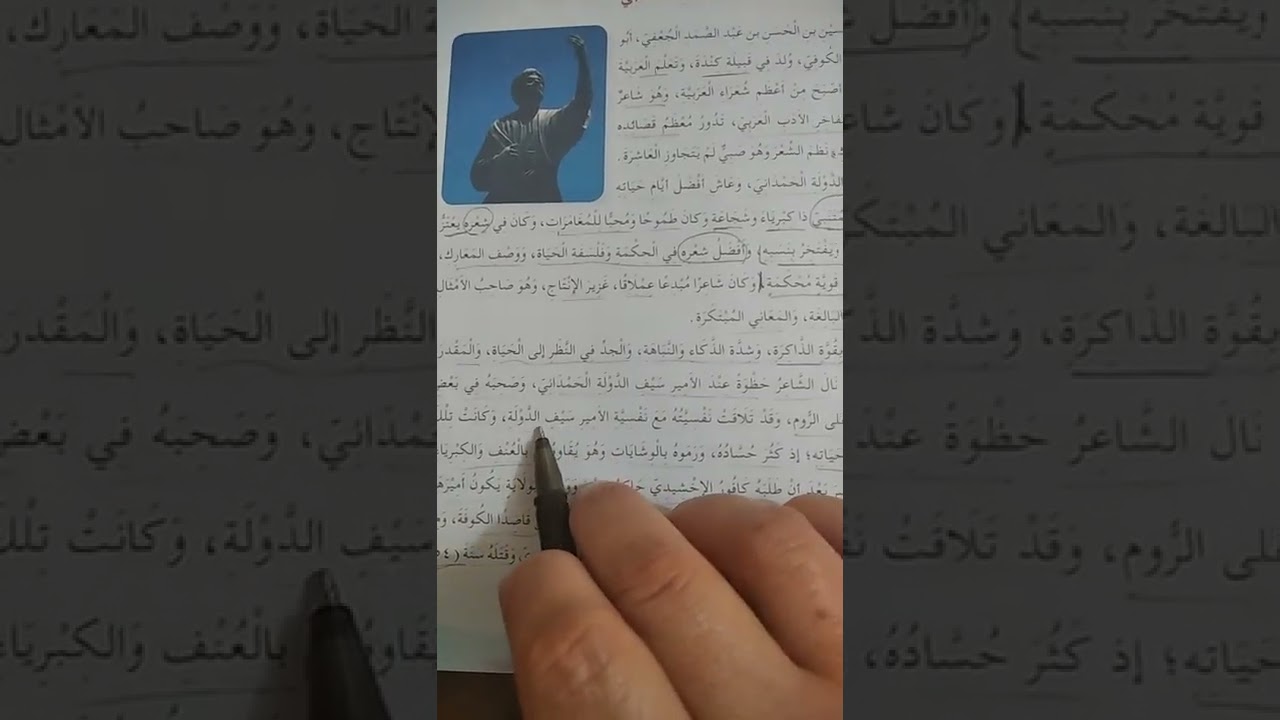 سَيْن بن الْحَسن بن عَبْد الصَّمَد الْجُعْفيّ، أبُو
الكُوفيّ، وُلدَ في قَبيلة كنْدَة، وَتَعَلَّم الْعَرَبيَّة
أصْبَحَ مِنْ أعْظَم شُعَرَاء الْعَرَبيَّة، وَهُو شَاعرٌ
فَاخر الأدَب الْعَربيّ، تَدُورُ مُعْظَمُ قَصَائده
نَظَم الشِّعْرَ وَهُو صَبيٌّ لَمْ يَتَجَاوز الْعَاشرَة.
الدَّوْلَة الْحَمْدَانيّ، وَعَاشَ أفْضَلَ أيَّام حَيَاته
مُتَنبيّ ذَا كبْريَاءَ وشَجَاعَة وَكَانَ طَمُوحًا وَمُحبًّا للْمُغَامَرَات، وَكَانَ في شعْره يَعْتَزُّ
وَيَفْتَخرُ بنَسَبه، وَأَفْضَلُ شعْره في الْحكْمَة وَفَلْسَفَة الْحَيَاة، وَوَصْف المَعَارك،
قَويَّة مُحْكَمَة، وَكَانَ شَاعرًا مُبْدعًا عمْلَاقًا، غَزيرَ الإنْتَاج، وَهُوَ صَاحبُ الأمْثَال
البَالغَة، وَالمَعَاني المُبْتَكَرَة.
بقُوَّة الذَّاكرَة، وَشدَّة الذَّكَاء وَالنَّبَاهَة، وَالْجدِّ في النَّظَر إلى الْحَيَاة، وَالْمَقْدر
نَالَ الشَّاعرُ حَظْوَةً عنْدَ الأمير سَيْف الدَّوْلَة الْحَمْدَانيّ، وَصَحبَهُ في بَعْض
عَلى الرُّوم، وَقَدْ تَلَاقَتْ نَفْسيَّتُهُ مَعَ نَفْسيَّة الأمير سَيْف الدَّوْلَة، وَكَانَتْ تلْكَ
حَيَاته؛ إذ كَثُرَ حُسَّادُهُ، وَرَمَوهُ بالْوشَايَات وَهُوَ يُقَاو بالْعُنْف وَالكبْريَاء
بَعْدَ أنْ طَلَبَهُ كَافُورُ الإخْشيديّ حَاك ولَايَة يَكُونُ أميْرَهَا
قَاصدًا الكُوفَةَ،
وَقَتَلَهُ سَنَة (